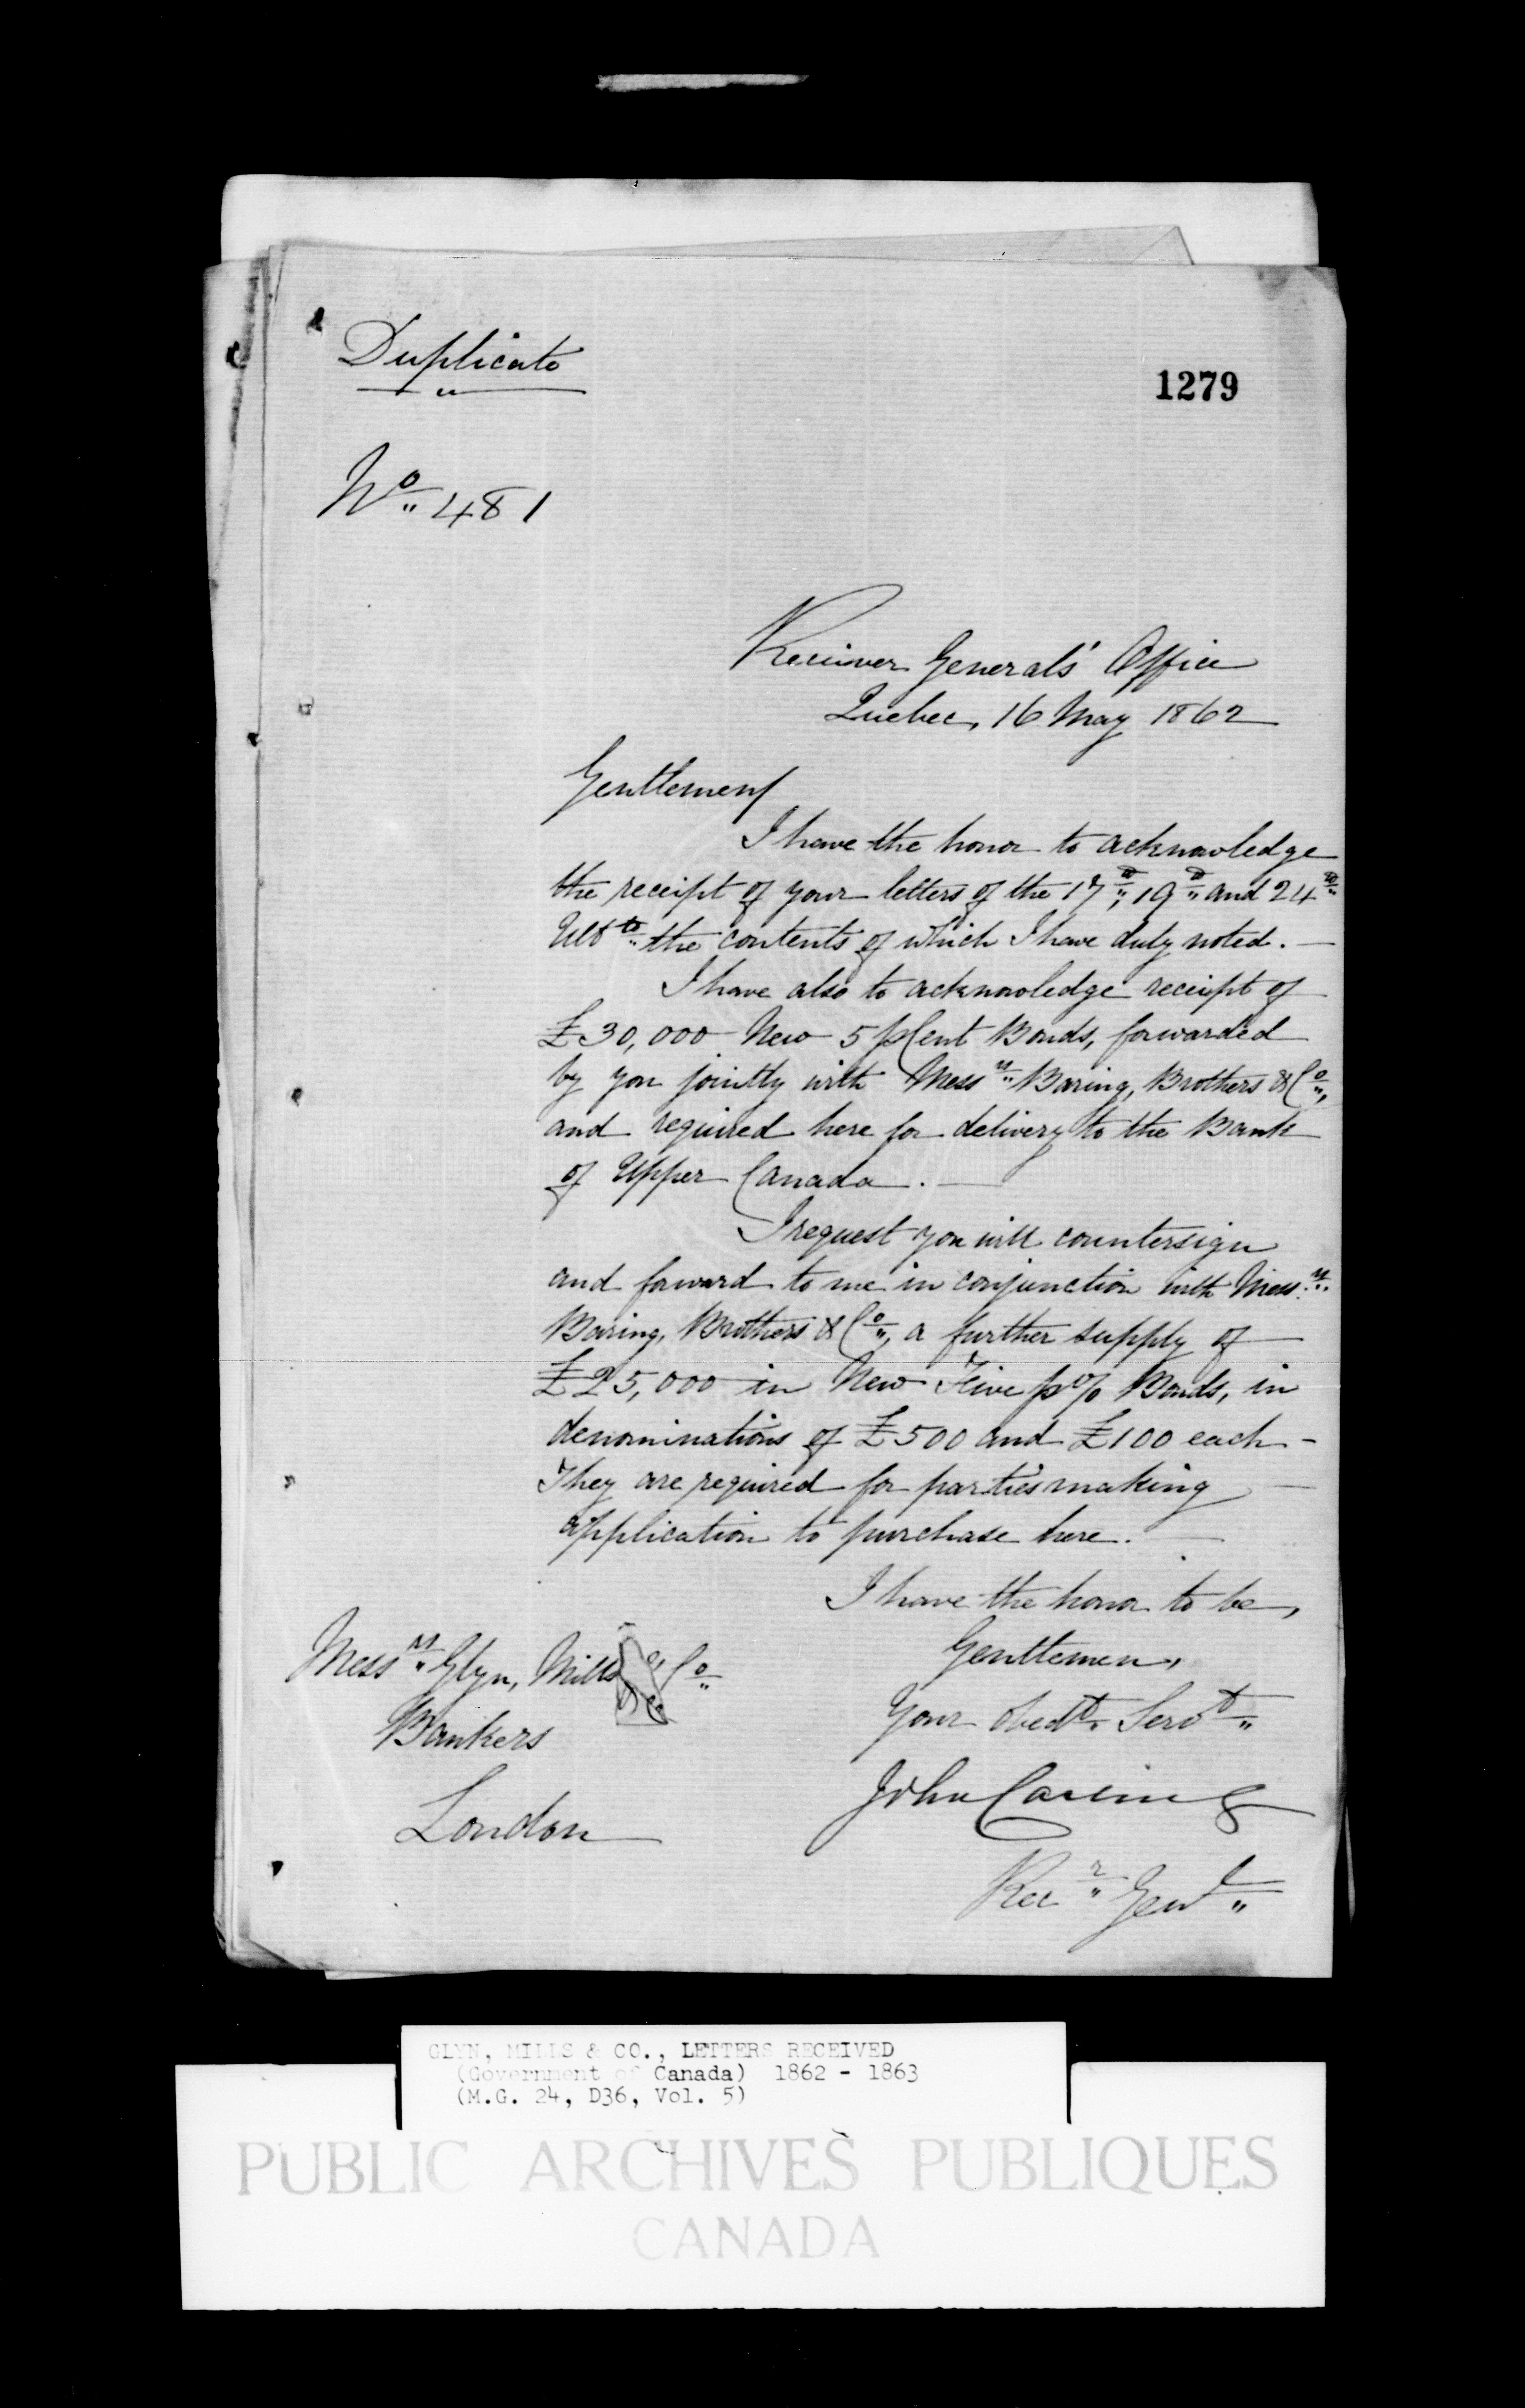 Duplicate
1279
No 481
Receiver Generals' Office
Quebec, 16 May 1862
Gentlemen
I have the honor to acknowledge
the receipt of your letters of the 17th, 19th and 24th
Ulto the contents of which I have duly noted.
I have also to acknowledge receipt of
£30,000 New 5 p Cent Bonds, forwarded
by you jointly with Messrs Baring, Brothers & Co,
and required here for delivery to the Bank
of Upper Canada.
I request you will countersign
and forward to me in conjunction with Messrs
Baring, Brothers & Co, a further supply of
£25,000 in New Five p% Bonds, in
denominations of £500 and £100 each -
They are required for parties making
application to purchase here.
I have the honor to be,
Gentlemen,
Your obedt Servt
John Carling
Recr Genl
Messrs Glyn, Mills & Co
Bankers
London
GLYN, MILLS & CO., LETTERS RECEIVED
(Government of Canada) 1862 - 1863
(M.G. 24, D36, Vol. 5)
PUBLIC ARCHIVES PUBLIQUES
CANADA